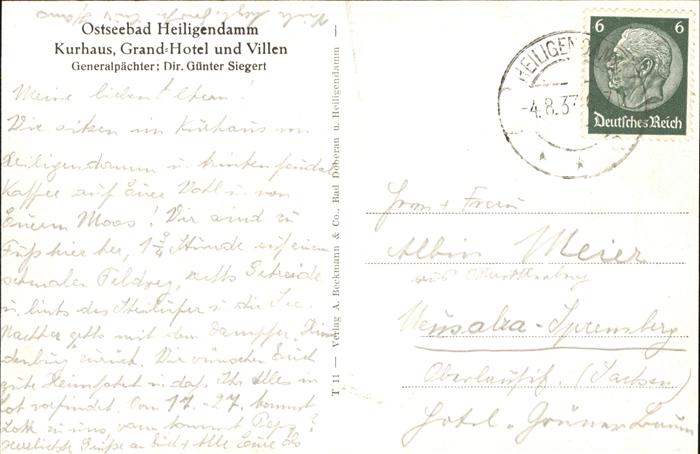 Ostseebad Heiligendamm
Kurhaus, Grand-Hotel und Villen
Generalpächter: Dir. Günter Siegert
Meine lieben Eltern!
Wir sitzen im Kurhaus von
Heiligendamm u. trinken
Kaffee auf Euer Wohl u. von
Euerm Moos! Wir sind zu
Fuß hier her, 1 3/4 Stunde auf einem
schmalen Feldweg, rechts Getreide
u. links das Steilufer u. die See.
Nachher gehts mit dem Dampfer „Hin
denburg" zurück. Wir wünschen Euch
gute Heimfahrt u. daß Ihr Alles in
Lot vorfindet. Vom 17.-27. kommt
Lotte zu uns, wann kommt
Grüße an Euch Alle Eure
T 11 — Verlag A. Beckmann & Co., Bad Doberan u. Heiligendamm —
HEILIGENDAMM
-4.8.37
6 6
Deutsches Reich
Herrn + Frau
Albin Meier
aus
Neusalza-Spremberg
Oberlausitz. (Sachsen)
Hotel - Grüner Baum